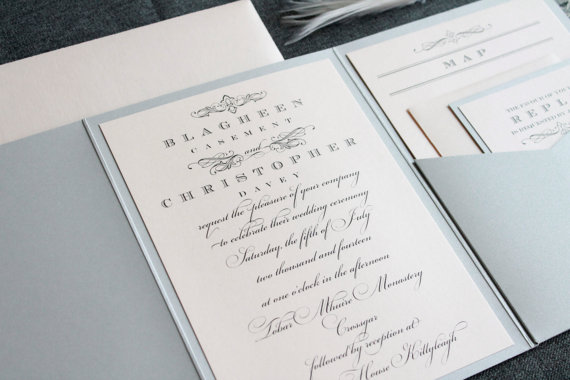 BLAGHEEN
CASEMENT
and
CHRISTOPHER
DAVEY
request the pleasure of your company
to celebrate their wedding ceremony
Saturday, the fifth of July
two thousand and fourteen
at one o'clock in the afternoon
Tobar Mhuire Monastery
Crossgar
followed by reception at
House Killyleagh
MAP
THE FAVOUR OF YOUR
REPL
IS REQUESTED BY